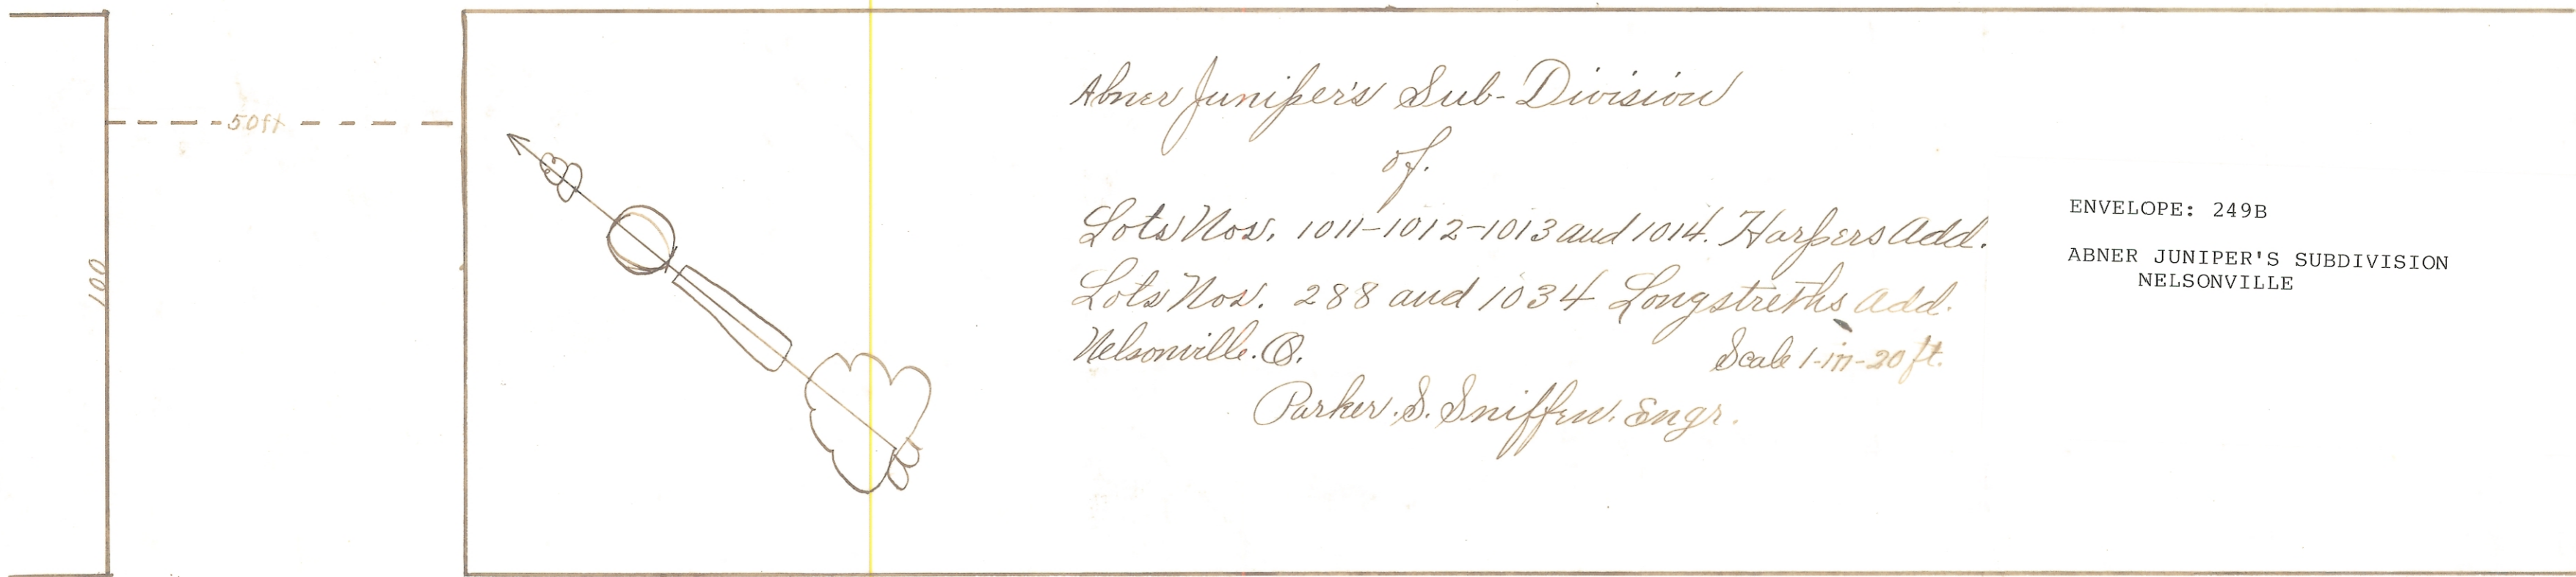 50ft
100
Abner Juniper's Sub-Division
of.
Lots Nos. 1011-1012-1013 and 1014. Harpers Add.
Lots Nos. 288 and 1034 Longstreths Add.
Nelsonville. O.
Scale 1-in-20 ft.
Parker. S. Sniffen. Engr.
ENVELOPE: 249B
ABNER JUNIPER'S SUBDIVISION
NELSONVILLE